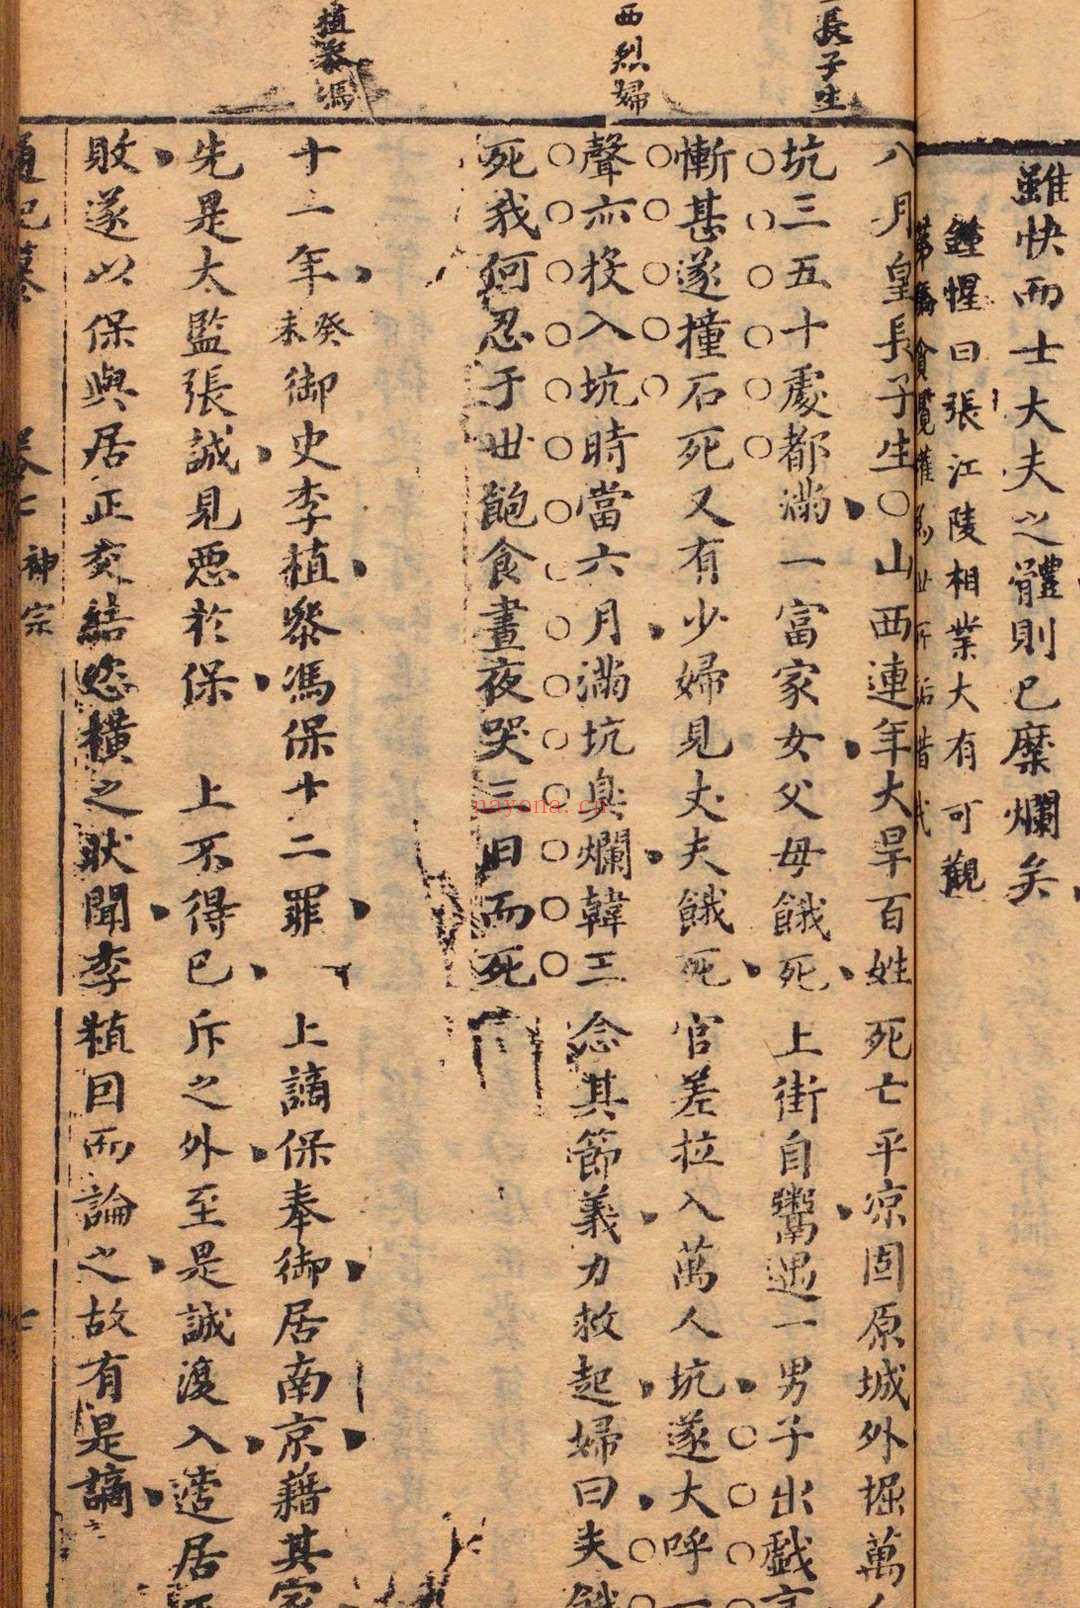 雖快而士大夫之體則已糜爛矣
鍾惺曰張江陵相業大有可觀
長子生
西烈婦
植參馮
八月皇長子生○山西連年大旱百姓死亡平凉固原城外掘萬人
坑三五十處都滿一富家女父母餓死上街自鬻遇一男子出戲言
慚甚遂撞石死又有少婦見丈夫餓死官差拉入萬人坑遂大呼一
聲亦投入坑時當六月滿坑臭爛韓王念其節義力救起婦曰夫餓
死我何忍于世飽食晝夜哭三日而死
十一年癸未御史李植參馮保十二罪 上謫保奉御居南京藉其家
先是太監張誠見惡於保 上不得已斥之外至是誠復入
敗遂以保與居正交結恣横之狀聞李植回而論之故有是謫
神宗
nayona.cn